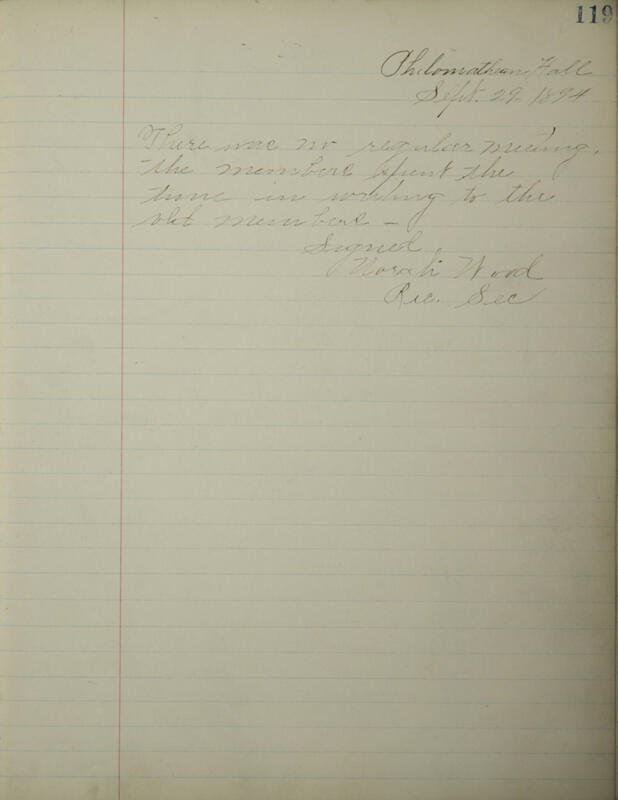 119
Philomathean Hall
Sept. 29 1894
There was no regular meeting,
the members spent the
time in writing to the
old members –
Signed,
Norah Wood
Rec. Sec